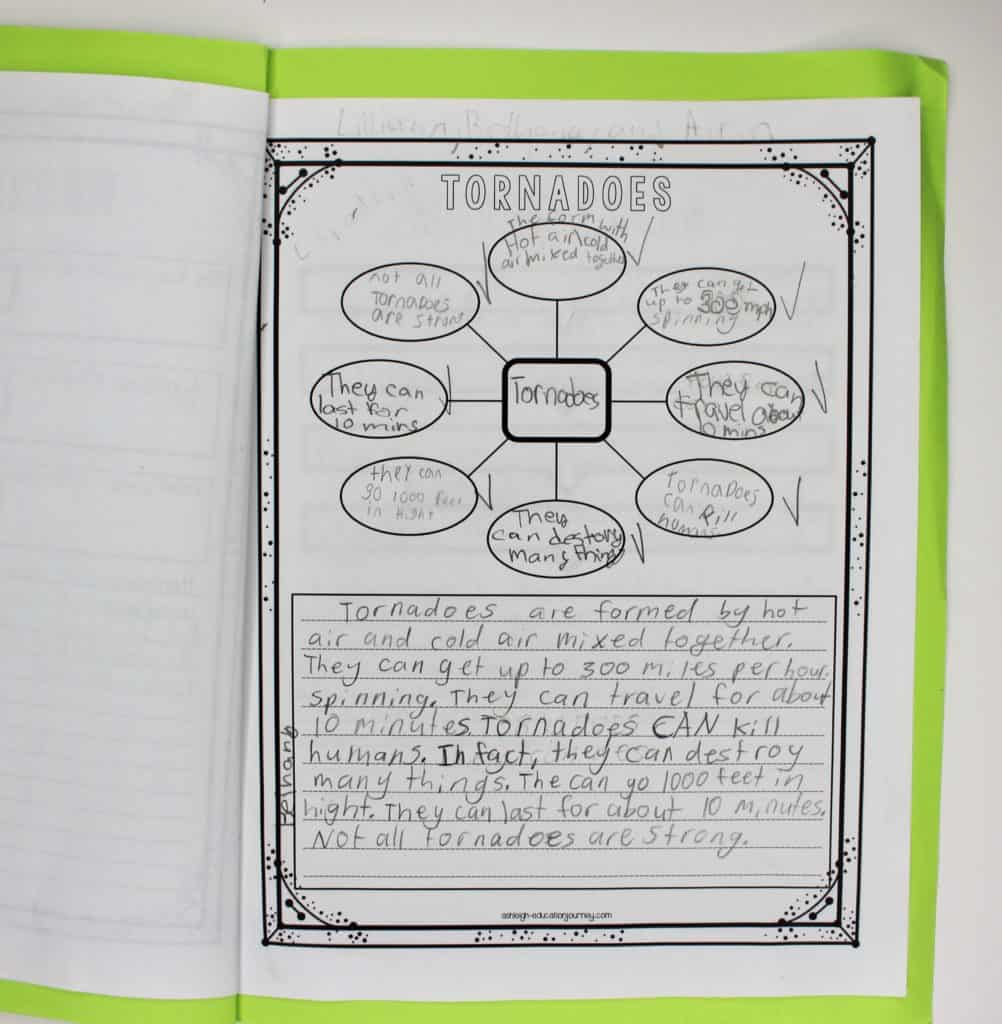 and
TORNADOES
The form with
Hot air cold
air mixed together
not all
TorNaDoES
are strong
They can get
up to 300 mph
spinning
They can
last for
10 mins
Tornadoes
They can
travel about
10 mins
they can
30 1000 feet
in hight
They
can destory
many thing
TorNaDoES
can kill
humans
Tornadoes are formed by hot
air and cold air mixed together.
They can get up to 300 miles per hour
spinning. They can travel for about
10 minutes. Tornadoes CAN kill
humans. In fact, they can destroy
many things. The can go 1000 feet in
hight. They can last for about 10 minutes.
Not all tornadoes are strong.
ashleigh-educationjourney.com